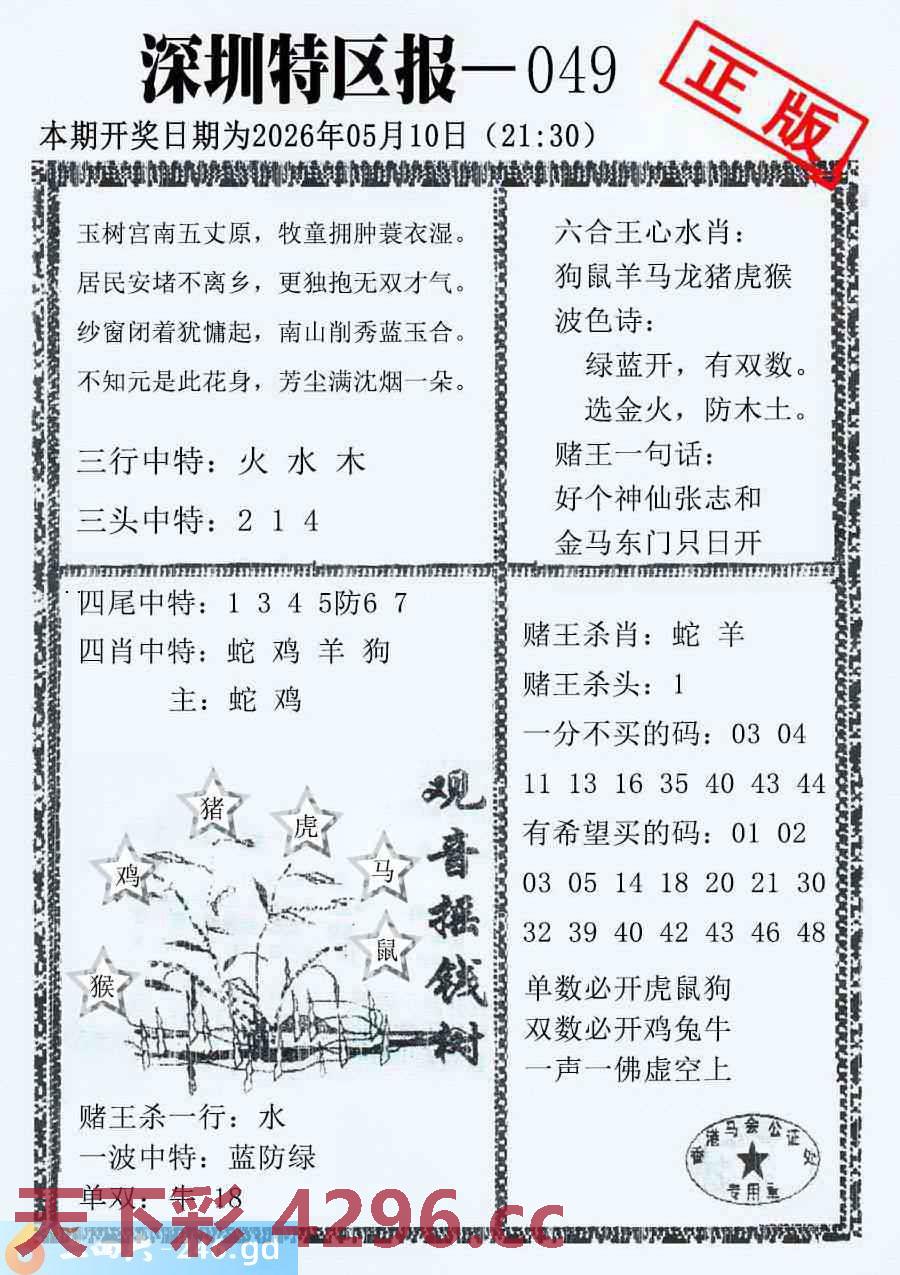 深圳特区报—049
正版
本期开奖日期为2026年05月10日（21:30）
玉树宫南五丈原，牧童拥肿蓑衣湿。
居民安堵不离乡，更独抱无双才气。
纱窗闭着犹慵起，南山削秀蓝玉合。
不知元是此花身，芳尘满沈烟一朵。
三行中特：火 水 木
三头中特：2 1 4
六合王心水肖：
狗鼠羊马龙猪虎猴
波色诗：
绿蓝开，有双数。
选金火，防木土。
赌王一句话：
好个神仙张志和
金马东门只日开
四尾中特：1 3 4 5防6 7
四肖中特：蛇 鸡 羊 狗
主：蛇 鸡
猪
虎
鸡
马
鼠
猴
观音摇钱树
赌王杀一行：水
一波中特：蓝防绿
单双：牛 18
赌王杀肖：蛇 羊
赌王杀头：1
一分不买的码：03 04
11 13 16 35 40 43 44
有希望买的码：01 02
03 05 14 18 20 21 30
32 39 40 42 43 46 48
单数必开虎鼠狗
双数必开鸡兔牛
一声一佛虚空上
香港马会公证处
专用章
天下彩 4296.cc